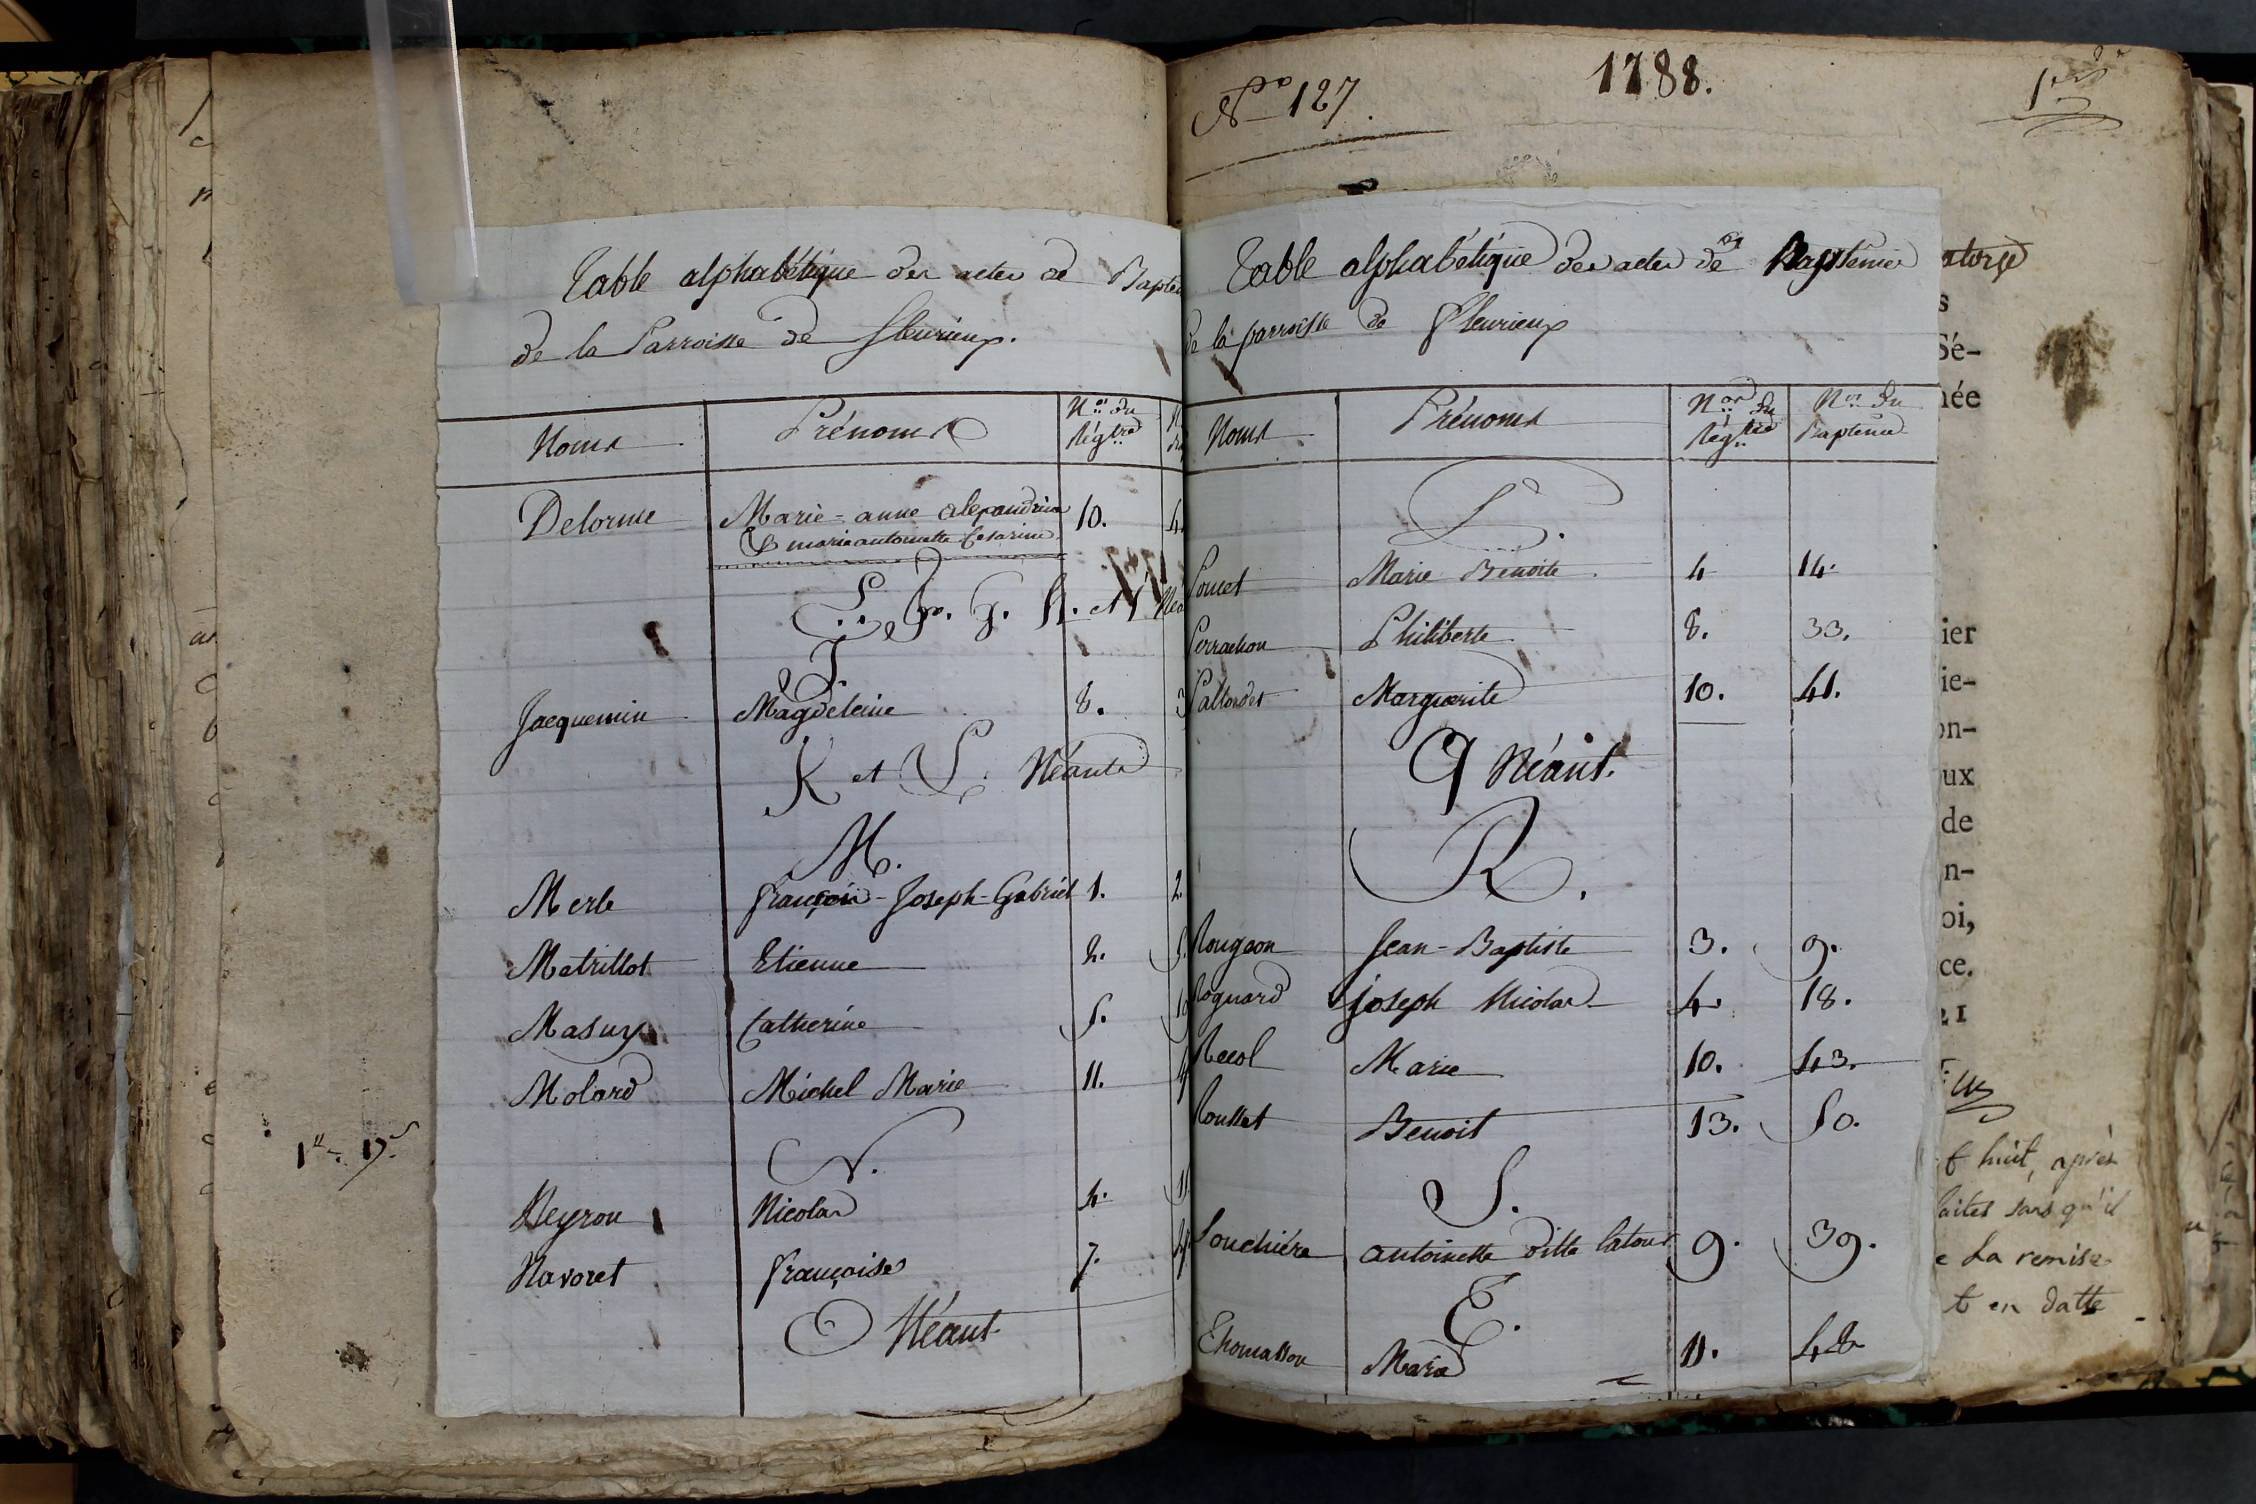 Table alphabétique des actes de Baptê
de la Parroisse de fleurieux.
Noms Prénoms Nos du Régtre
Delorme Marie-anne alexandrine 10. 4
& marie antoinette Cesarine
E. F. G. H. et I Néa
J.
Jacquemin Magdeleine 8. 3
K et L. Néants
M.
Merle françois-Joseph-Gabriel 1. 2
Matrillot Etienne 2. 5.
Masuy Catherine 5. 19
Molard Michel Marie 11. 4
N.
Neyron Nicolas 4.
Navoret françoise 7.
O Néant
1re. 17.
No 127
1788.
Table alphabétique des actes de Baptême
de la parroisse de fleurieux
Noms Prénoms Nos du Régtre Nos du Baptême
P.
Poncet Marie Benoite 4 14.
Perrachon Philiberte 8. 33.
Paltoudet Marguerite 10. 41.
Q Néant.
R.
Rougeon Jean-Baptiste 3. 9.
Roguard joseph Nicolas 4. 18.
Recol Marie 10. 43.
Rousset Benoit 13. 50.
S.
Souchiére antoinette ditte latour 9. 39.
T.
Thomasson Marie 11. 48
atorze
s
Sé-
née
ier
ie-
on-
ux
de
n-
oi,
ce.
21
t huit, après
faites sans qu'il
e La remise
t en datte